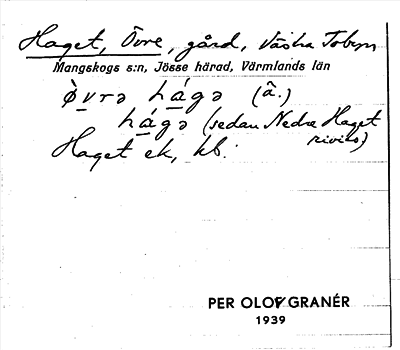 Haget, Övre, gård, Västra Tobyn
Mangskogs s:n, Jösse härad, Värmlands län
ø̀vrə hágə (â.)
hágə (sedan Nedre Haget
rivits)
Haget ek, kb.
PER OLOF GRANÉR
1939